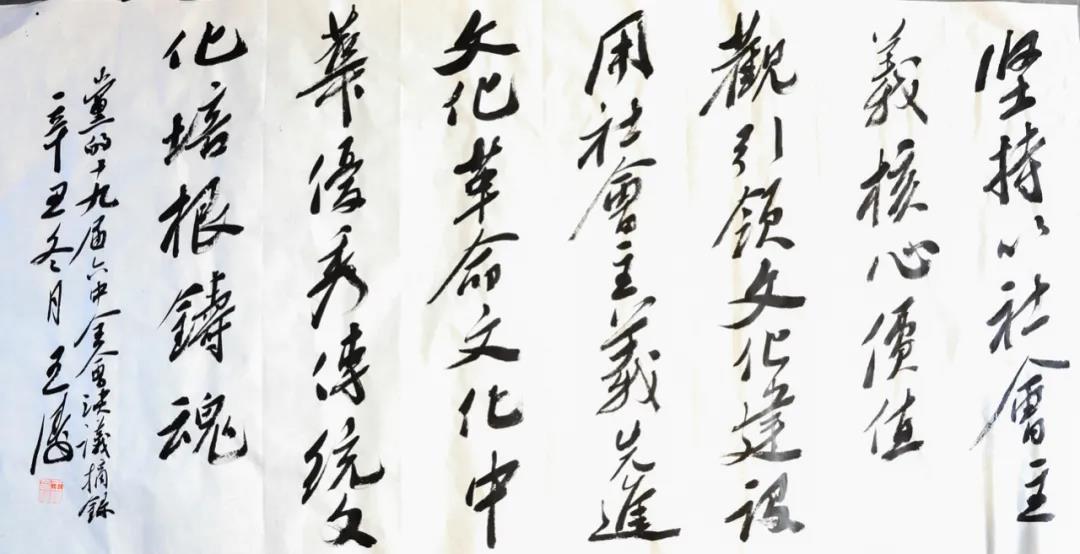 坚持以社會主
義核心價值
觀引領文化建设
用社會主義先進
文化革命文化中
華優秀傳統文
化培根鑄魂
黨的十九届六中全會决議摘錄
辛丑冬月 王濤